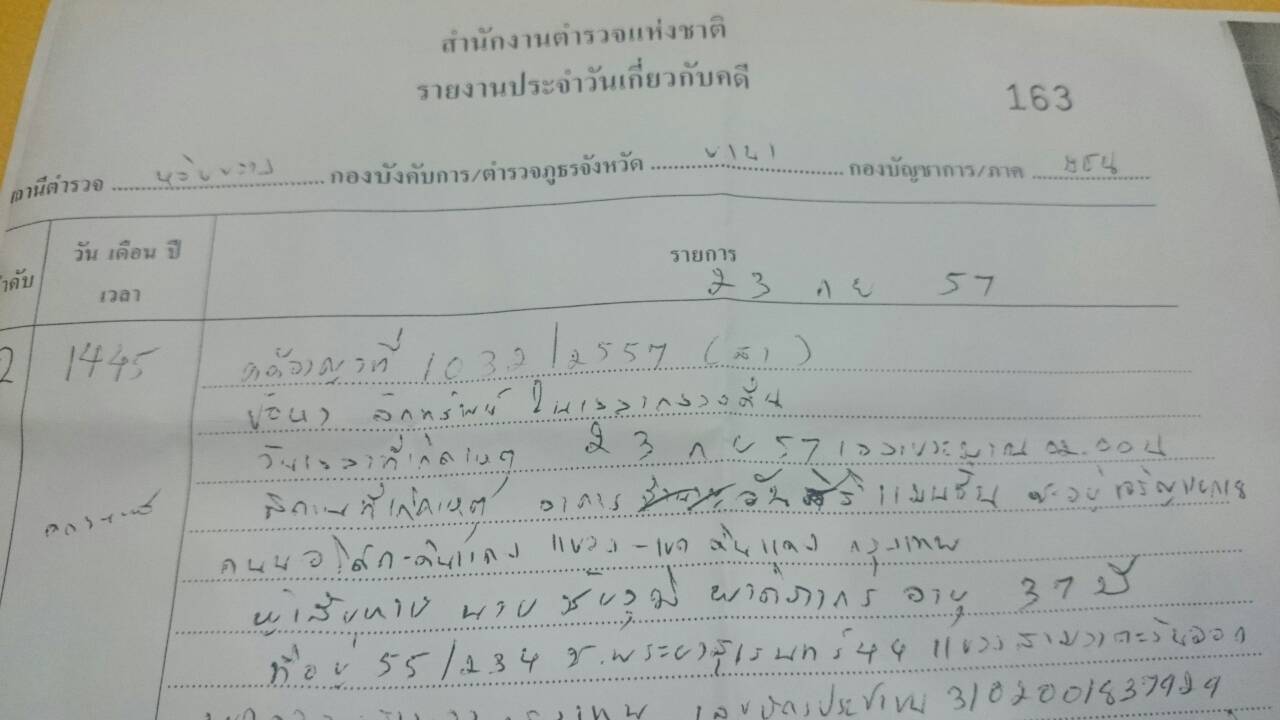 สำนักงานตำรวจแห่งชาติ
รายงานประจำวันเกี่ยวกับคดี
163
สถานีตำรวจ ห้วยขวาง กองบังคับการ/ตำรวจภูธรจังหวัด กองบัญชาการ/ภาค
ลำดับ วัน เดือน ปี เวลา รายการ
23 กย 57
2 1445 คดีอาญาที่ 1032/2557
ข้อหา ลักทรัพย์ ในเวลากลางคืน
วันเวลาที่เกิดเหตุ 23 กย 57 เวลาประมาณ 02.00 น
สถานที่เกิดเหตุ อาคาร แมนชั่น
ถนนอโศก-ดินแดง แขวง-เขต ดินแดง กรุงเทพ
ผู้เสียหาย นาย อายุ 37 ปี
ที่อยู่ 55/234 ซ.พระยาสุเรนทร์44 แขวงสามวาตะวันออก
กรุงเทพ เลขบัตรประชาชน 3102001837929